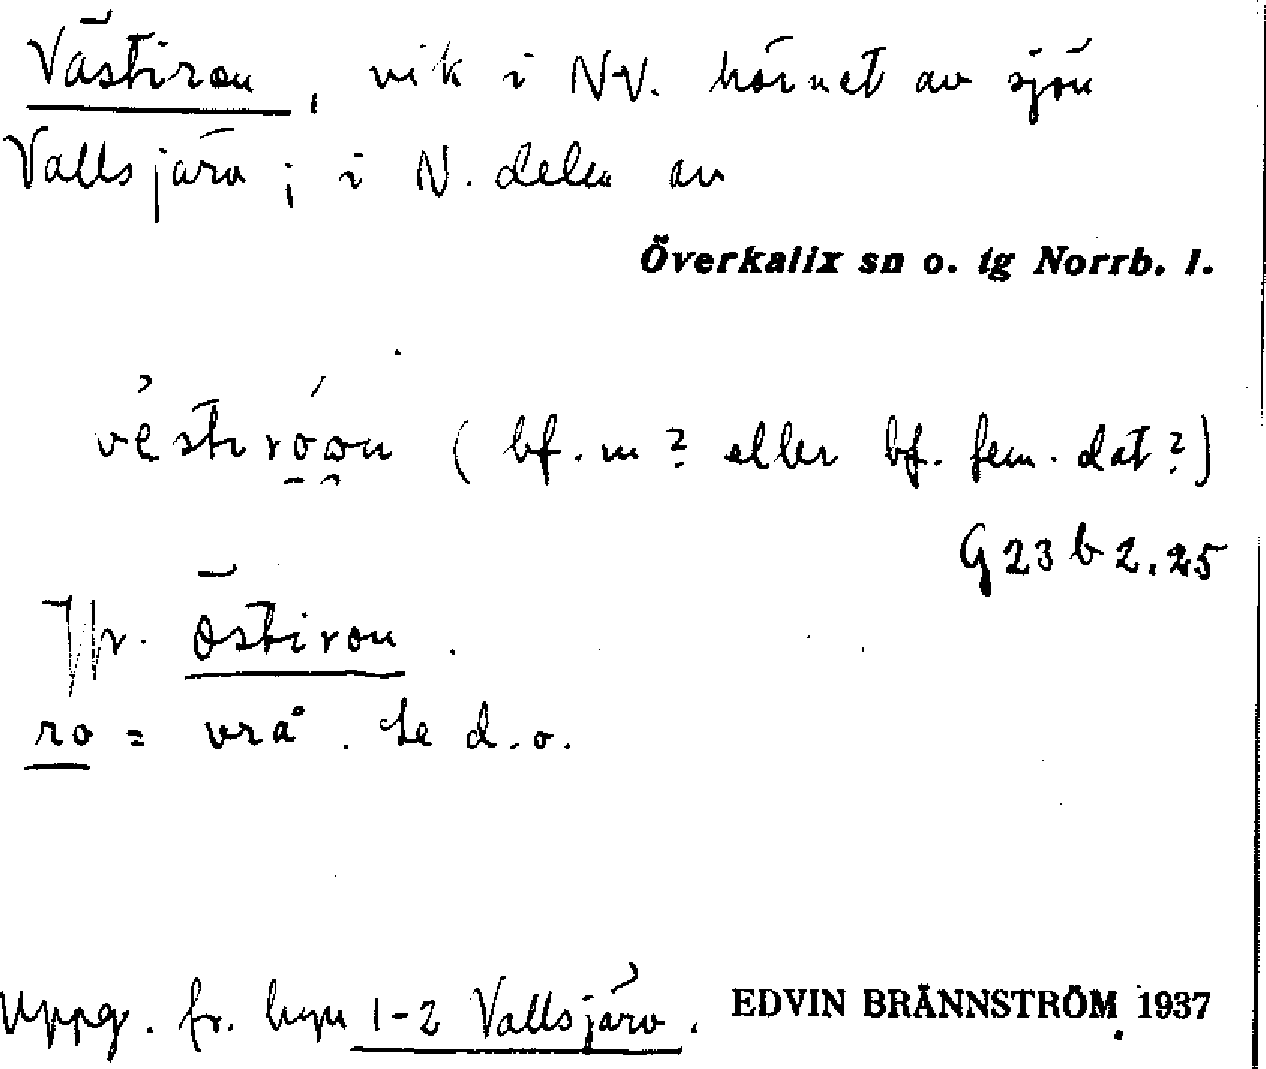 Västiron, vik i NV. hörnet av sjön
Vallsjärv; i N. delen av
Överkalix sn o. tg Norrb. l.
(bf. m? eller bf. fem. dat?)
G23 b 2.25
Jfr. Östiron.
ro = vrå. Se d.o.
Uppg. fr. hmn 1-2 Vallsjärv. EDVIN BRÄNNSTRÖM 1937